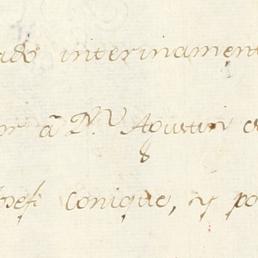 ado interinament
or â D.ⁿ Agustin
Josef. Conique, y po